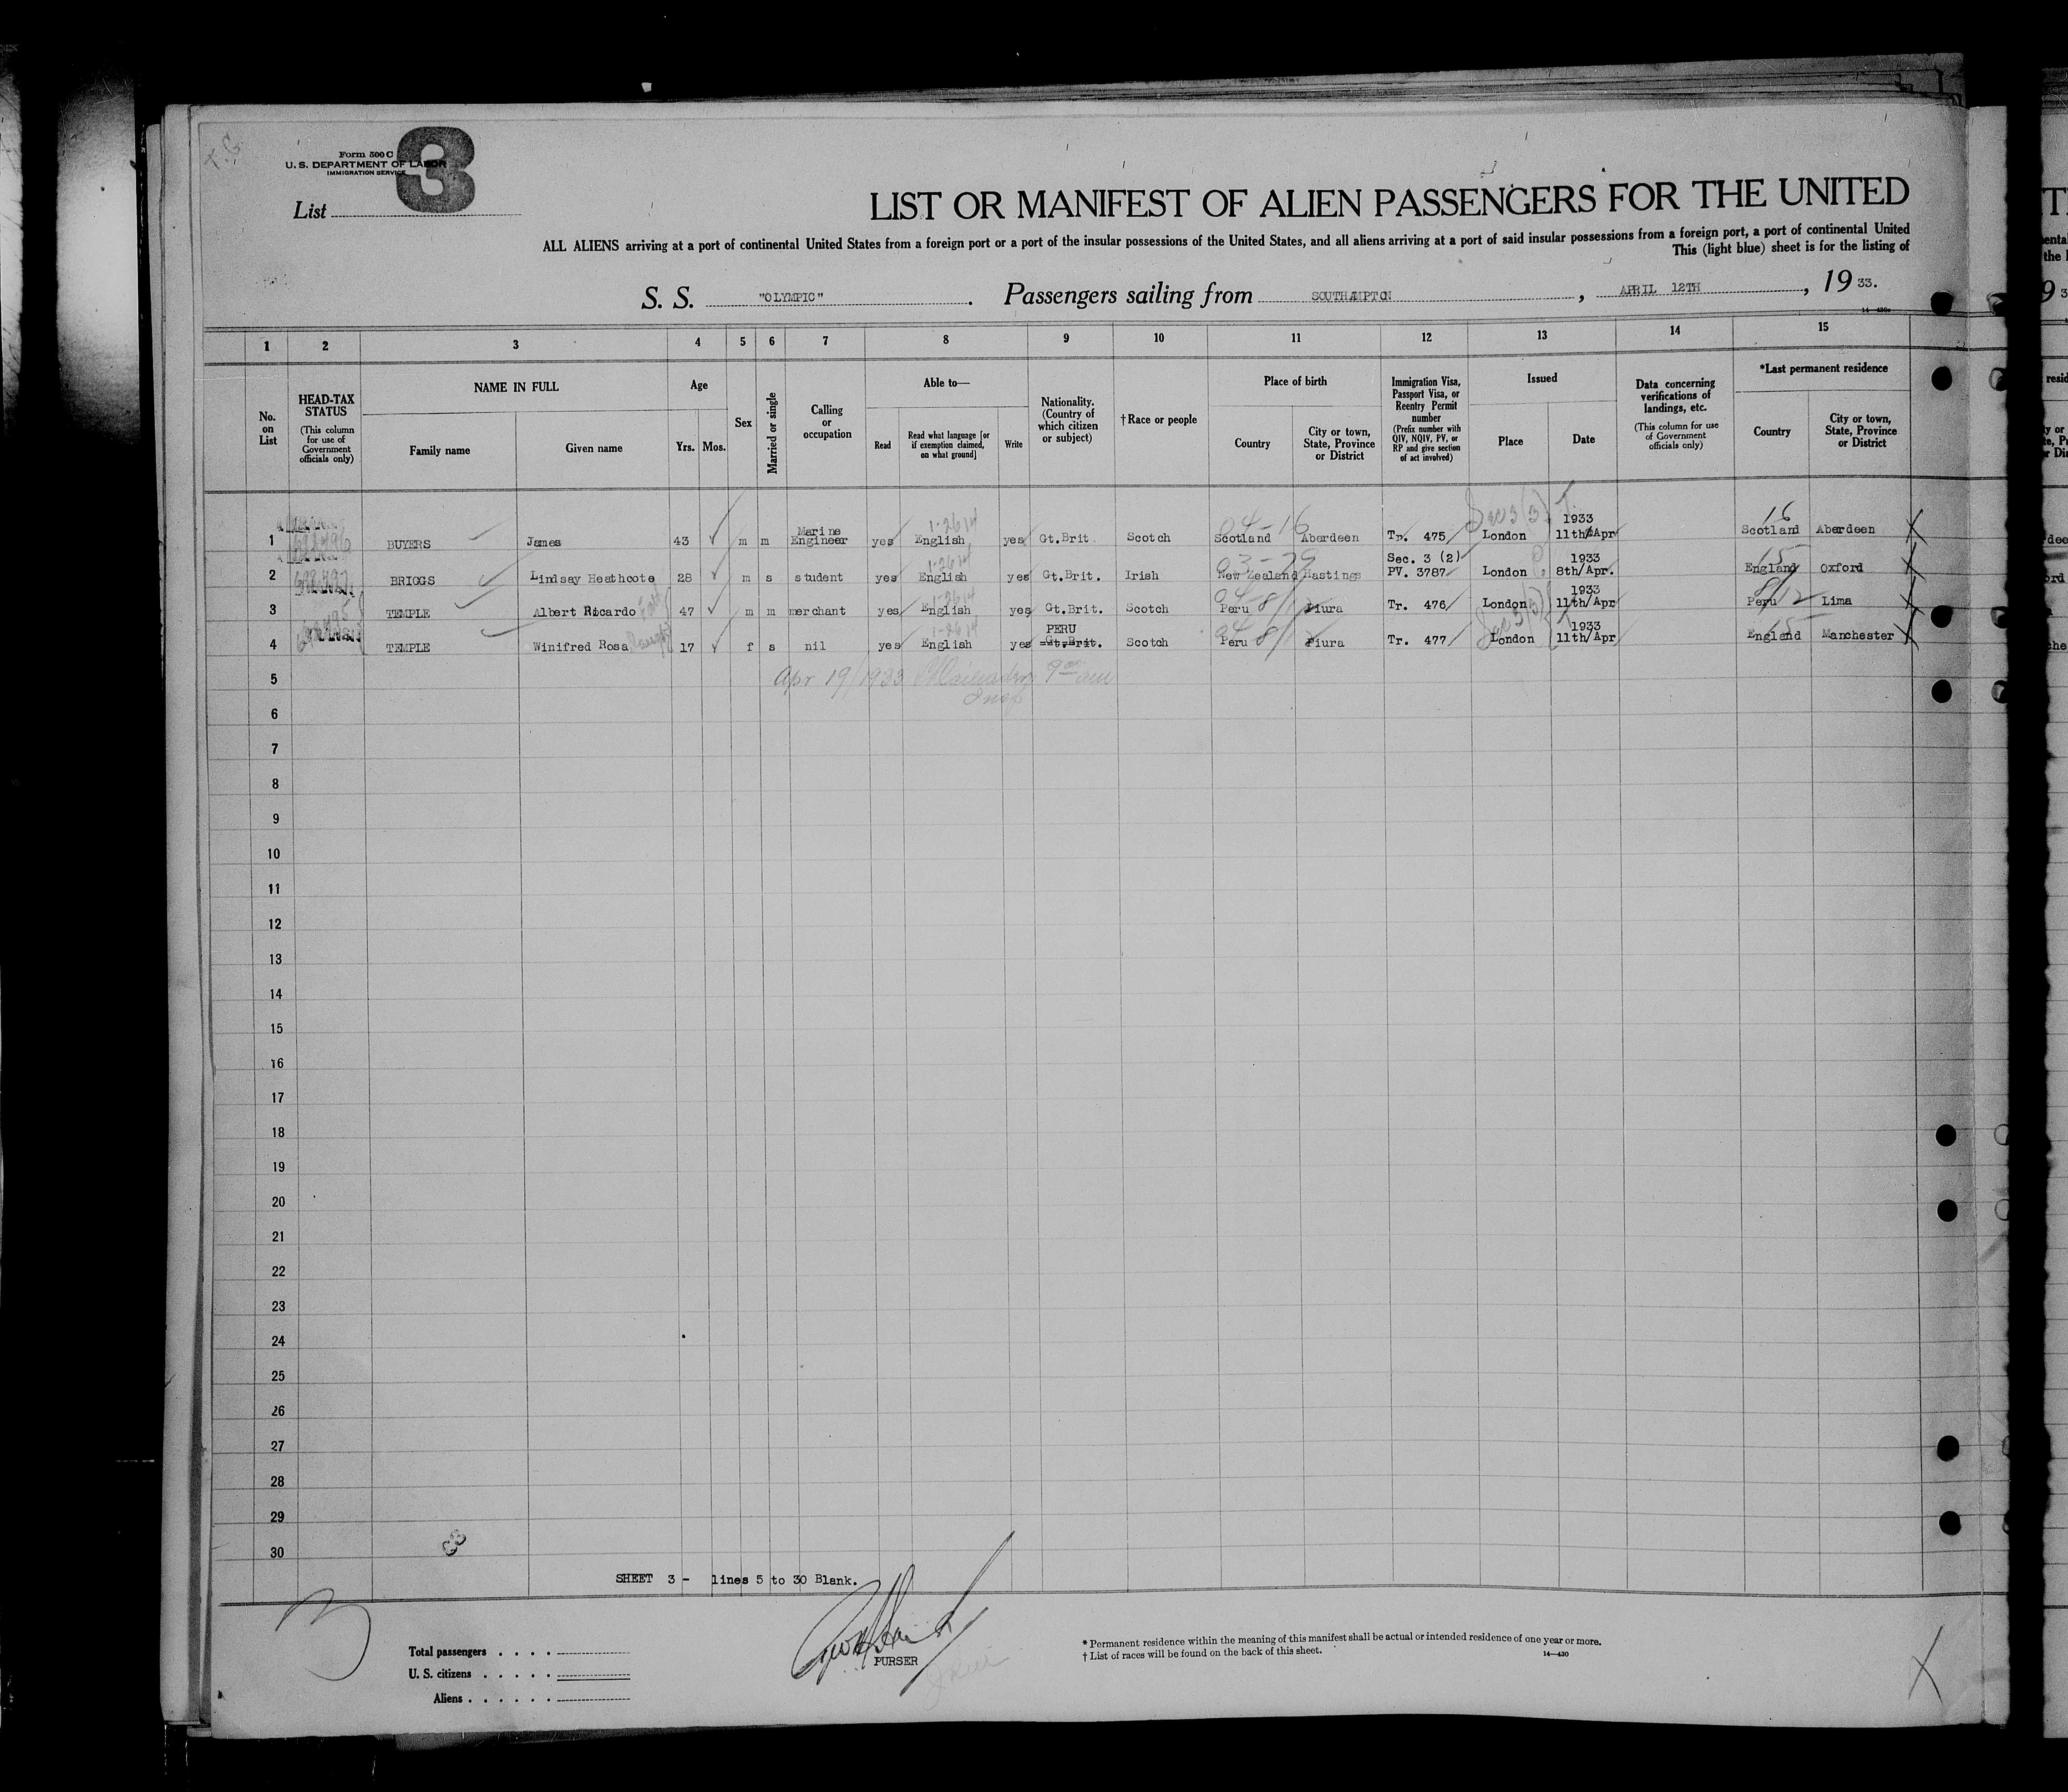 Form 500 C
U. S. DEPARTMENT OF LABOR
IMMIGRATION SERVICE
3
List
LIST OR MANIFEST OF ALIEN PASSENGERS FOR THE UNITED
ALL ALIENS arriving at a port of continental United States from a foreign port or a port of the insular possessions of the United States, and all aliens arriving at a port of said insular possessions from a foreign port, a port of continental United
This (light blue) sheet is for the listing of
S. S. "OLYMPIC". Passengers sailing from SOUTHAMPTON, APRIL 12TH, 19 33.
1 2 3 4 5 6 7 8 9 10 11 12 13 14 15
No. on List
HEAD-TAX STATUS (This column for use of Government officials only)
NAME IN FULL
Family name
Given name
Age
Yrs. Mos.
Sex
Married or single
Calling or occupation
Able to—
Read
Read what language [or if exemption claimed, on what ground]
Write
Nationality. (Country of which citizen or subject)
†Race or people
Place of birth
Country
City or town, State, Province or District
Immigration Visa, Passport Visa, or Reentry Permit number (Prefix number with QIV, NQIV, PV, or RP and give section of act involved)
Issued
Place
Date
Data concerning verifications of landings, etc. (This column for use of Government officials only)
*Last permanent residence
Country
City or town, State, Province or District
1 BUYERS James 43 m m Marine Engineer yes English yes Gt.Brit. Scotch Scotland Aberdeen Tr. 475 London 1933 11th/Apr Scotland Aberdeen
2 BRIGGS Lindsay Heathcote 28 m s student yes English yes Gt.Brit. Irish New Zealand Hastings Sec. 3 (2) PV. 3787 London 1933 8th/Apr. England Oxford
3 TEMPLE Albert Ricardo 47 m m merchant yes English yes Gt.Brit. Scotch Peru Piura Tr. 476 London 1933 11th/Apr Peru Lima
4 TEMPLE Winifred Rosa 17 f s nil yes English yes PERU Gt.Brit. Scotch Peru Piura Tr. 477 London 1933 11th/Apr England Manchester
5 Apr 19/1933 9 00 am
Insp
6
7
8
9
10
11
12
13
14
15
16
17
18
19
20
21
22
23
24
25
26
27
28
29
30
SHEET 3 - lines 5 to 30 Blank.
3
Total passengers
U. S. citizens
Aliens
PURSER
* Permanent residence within the meaning of this manifest shall be actual or intended residence of one year or more.
† List of races will be found on the back of this sheet.
14—430